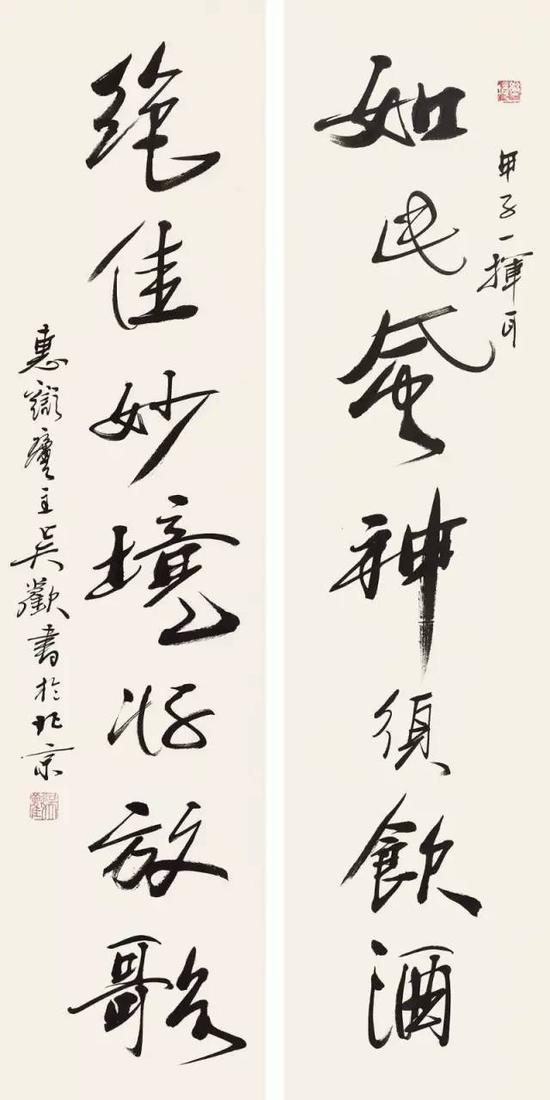 甲子一揮
如此風神須飲酒
絕佳妙境將放歌
惠主吳歡書於北京